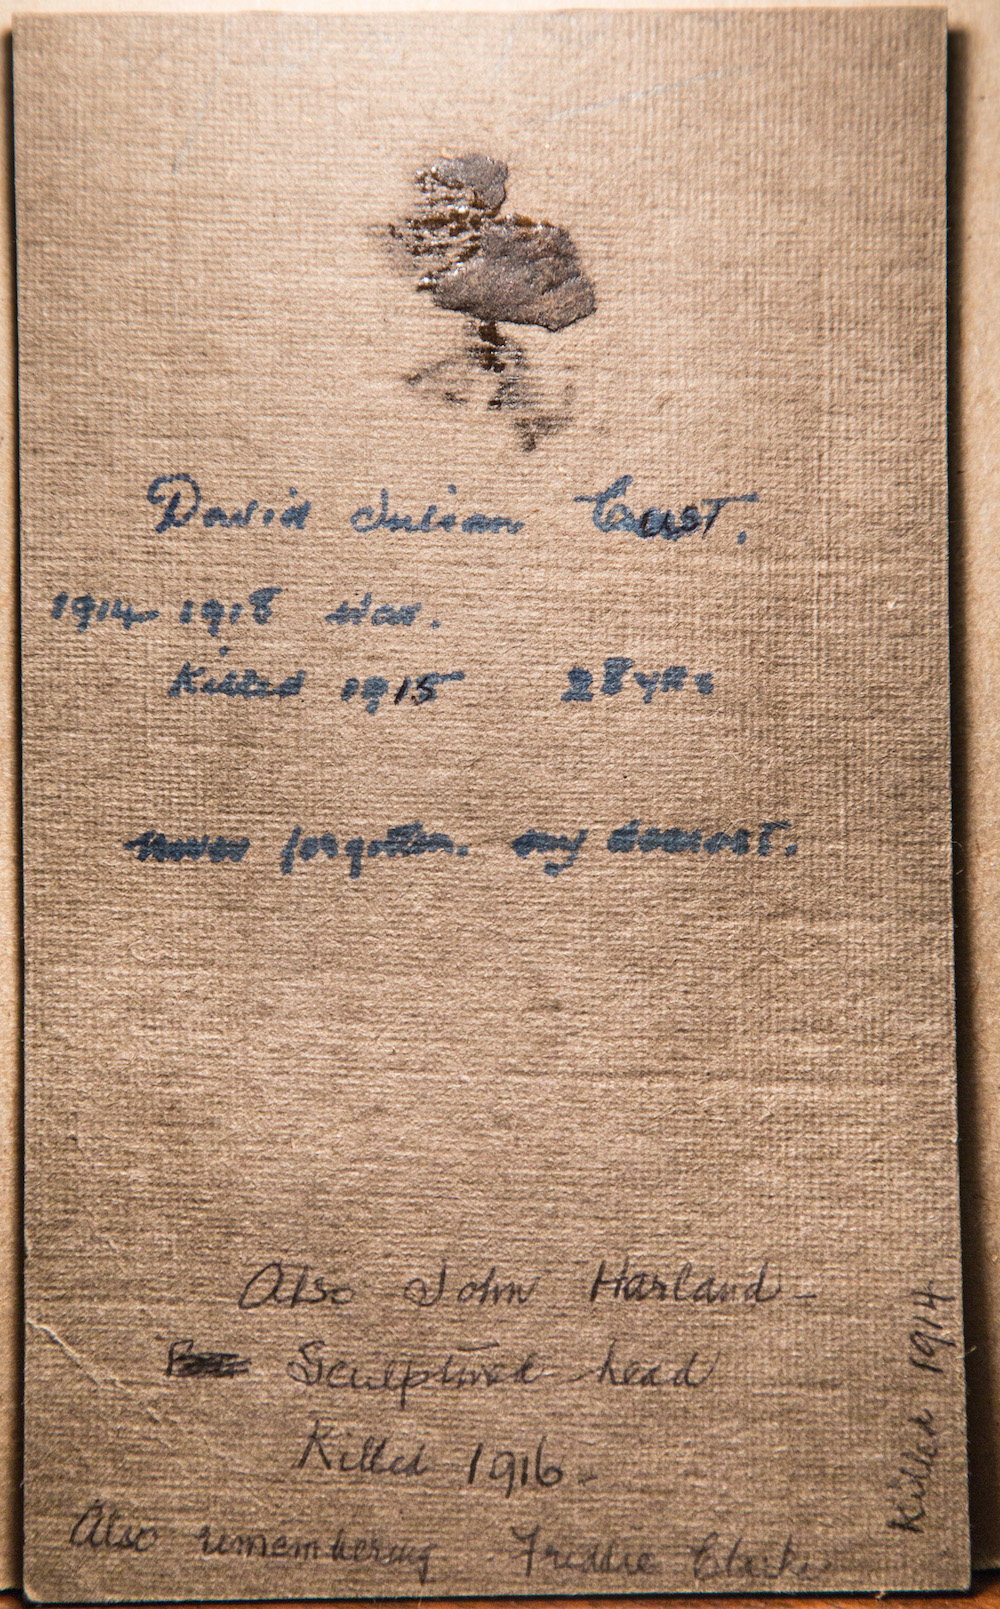 David Julian Cust.
1914 1918 War.
Killed 1915 28 yrs
never forgotten. my dearest.
Also John Harland -
Sculptured head
Killed 1916 -
Also remembering Freddie
Killed 1914